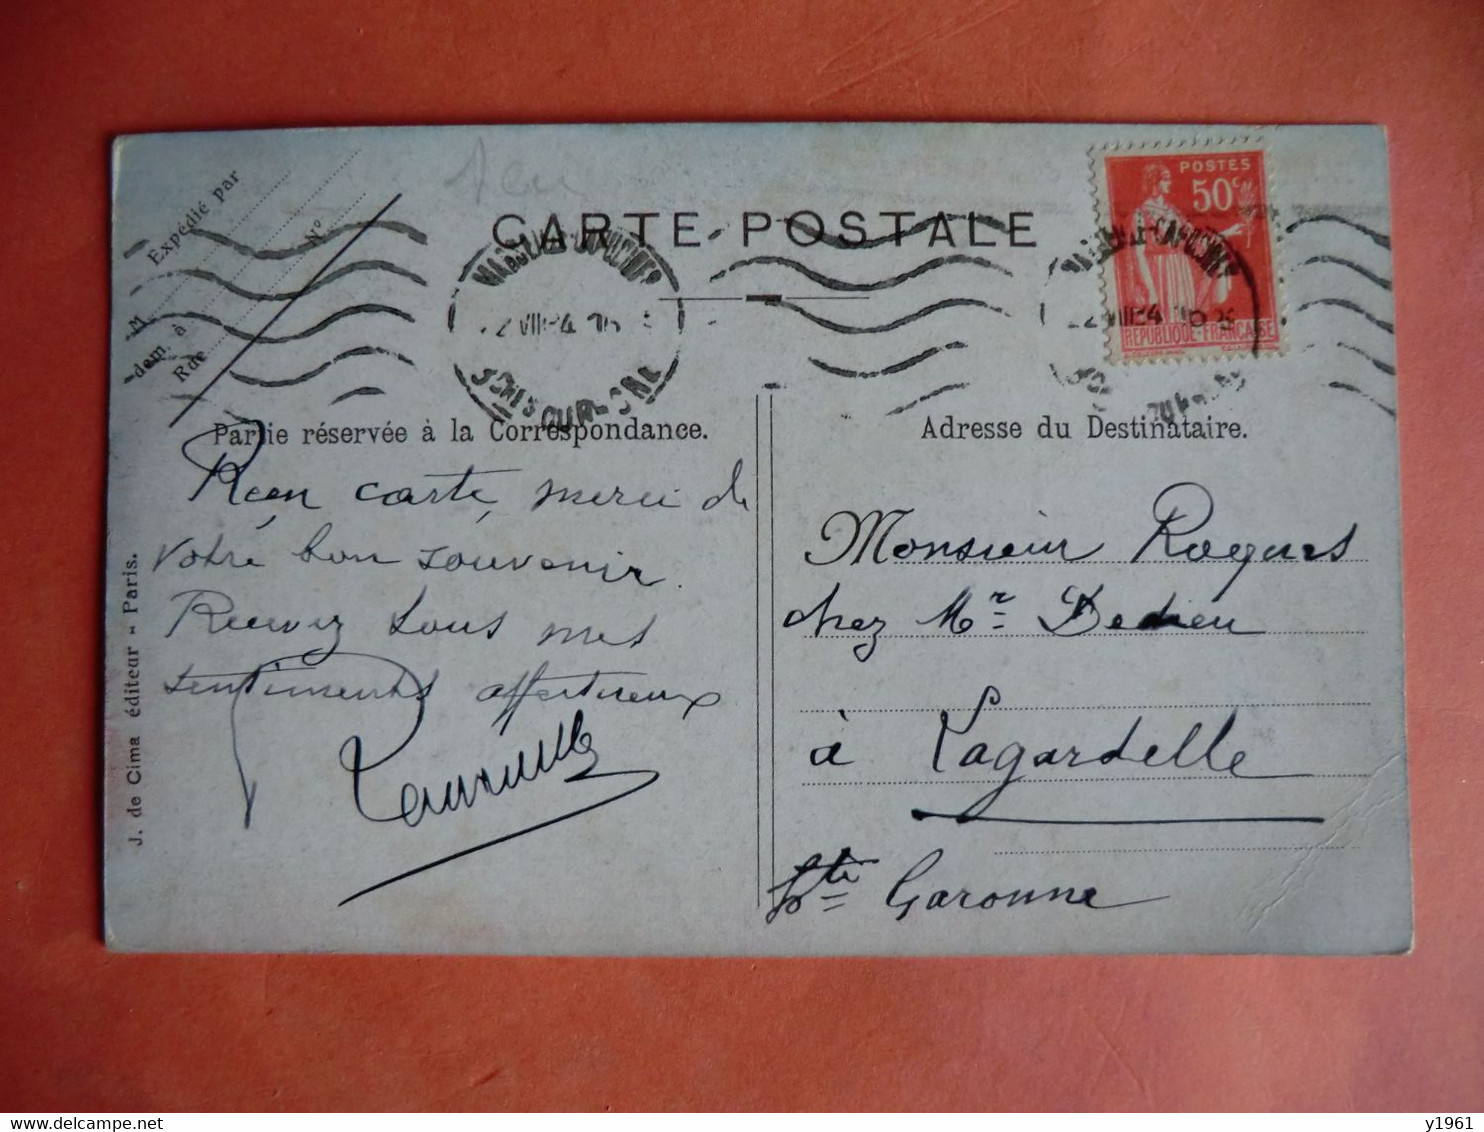 CARTE POSTALE
Expédié par
M
dem. à
Rue
N°
POSTES
50c
REPUBLIQUE-FRANÇAISE
MARSEILLE-CAPUCINES
Partie réservée à la Correspondance.
Reçu carte, merci de
votre bon souvenir.
Recevez tous mes
sentiments affectueux
Adresse du Destinataire.
Monsieur Roques
chez Mr Dedieu
à Lagardelle
Hte Garonne
J. de Cima éditeur - Paris.
delcampe.net
y1961